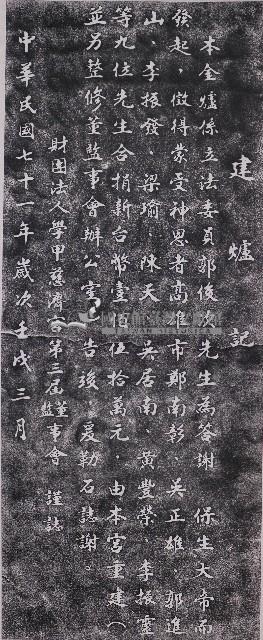 建爐記
本金爐係立法委員郭俊次先生為答謝　保生大帝而
發起，徵得蒙受神恩者高雄市鄭南彰、吳正雄、郭進
山、李振發、梁瑜、陳天 吳居南、黃豐榮、李振靈
等九位先生合捐新台幣壹佰伍拾萬元，由本宮重建（
並另整修董監事會辦公室）告竣，爰勒石誌謝。
財團法人學甲慈濟宮第三屆董監事會　謹誌
中華民國七十一年歲次壬戌三月